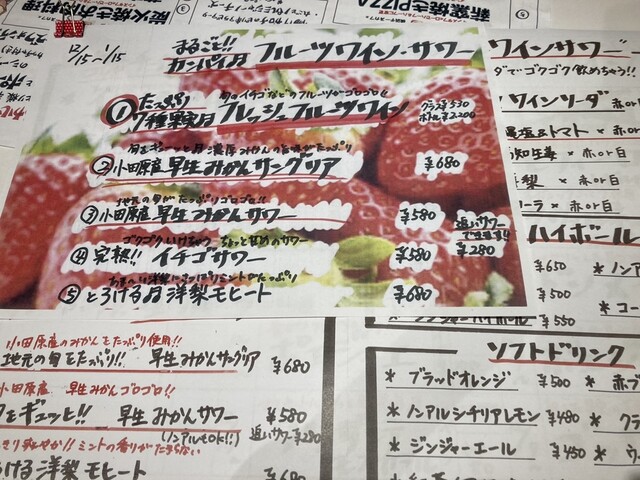 新窯焼きPIZZA
炭火焼きおでん料理
12/15〜1/15
まるごと!!
カンパイ的 フルーツワイン・サワー
① たっぷり 旬のイチゴなどのフルーツがゴロゴロ!!
7種果実のフレッシュフルーツワイン グラス¥530
ボトル¥2,200
② 小田原産 早生みかんサングリア ¥680
地元の旬がたっぷりゴロゴロ!!
③ 小田原産 早生みかんサワー ¥580
追いサワーできます!! ¥280
ゴクゴクいけちゃう ちょっと甘めのサワー
④ 完熟!! イチゴサワー ¥580
⑤ とろける的 洋梨モヒート ¥680
ワインサワー
ダでゴクゴク飲めちゃう!!
ワインソーダ
塩&トマト × 赤or白
知生姜 × 赤or白
梨 × 赤or白
ーラ × 赤or白
ハイボール
¥650 * ノンア
¥500 * コー
¥550
ソフトドリンク
* ブラッドオレンジ ¥500 * 赤ブ
* ノンアルシチリアレモン ¥480 * クラ
* ジンジャーエール ¥450 * ウー
小田原産のみかんをたっぷり使用!!
地元の旬をたっぷり!! 早生みかんサングリア ¥680
小田原産 早生みかんゴロゴロ!!
をギュッと!! 早生みかんサワー ¥580
(ノンアルもOK!!) 追いサワー¥280
きり爽やか!! ミントの香りがたまらない
ける洋梨モヒート ¥680